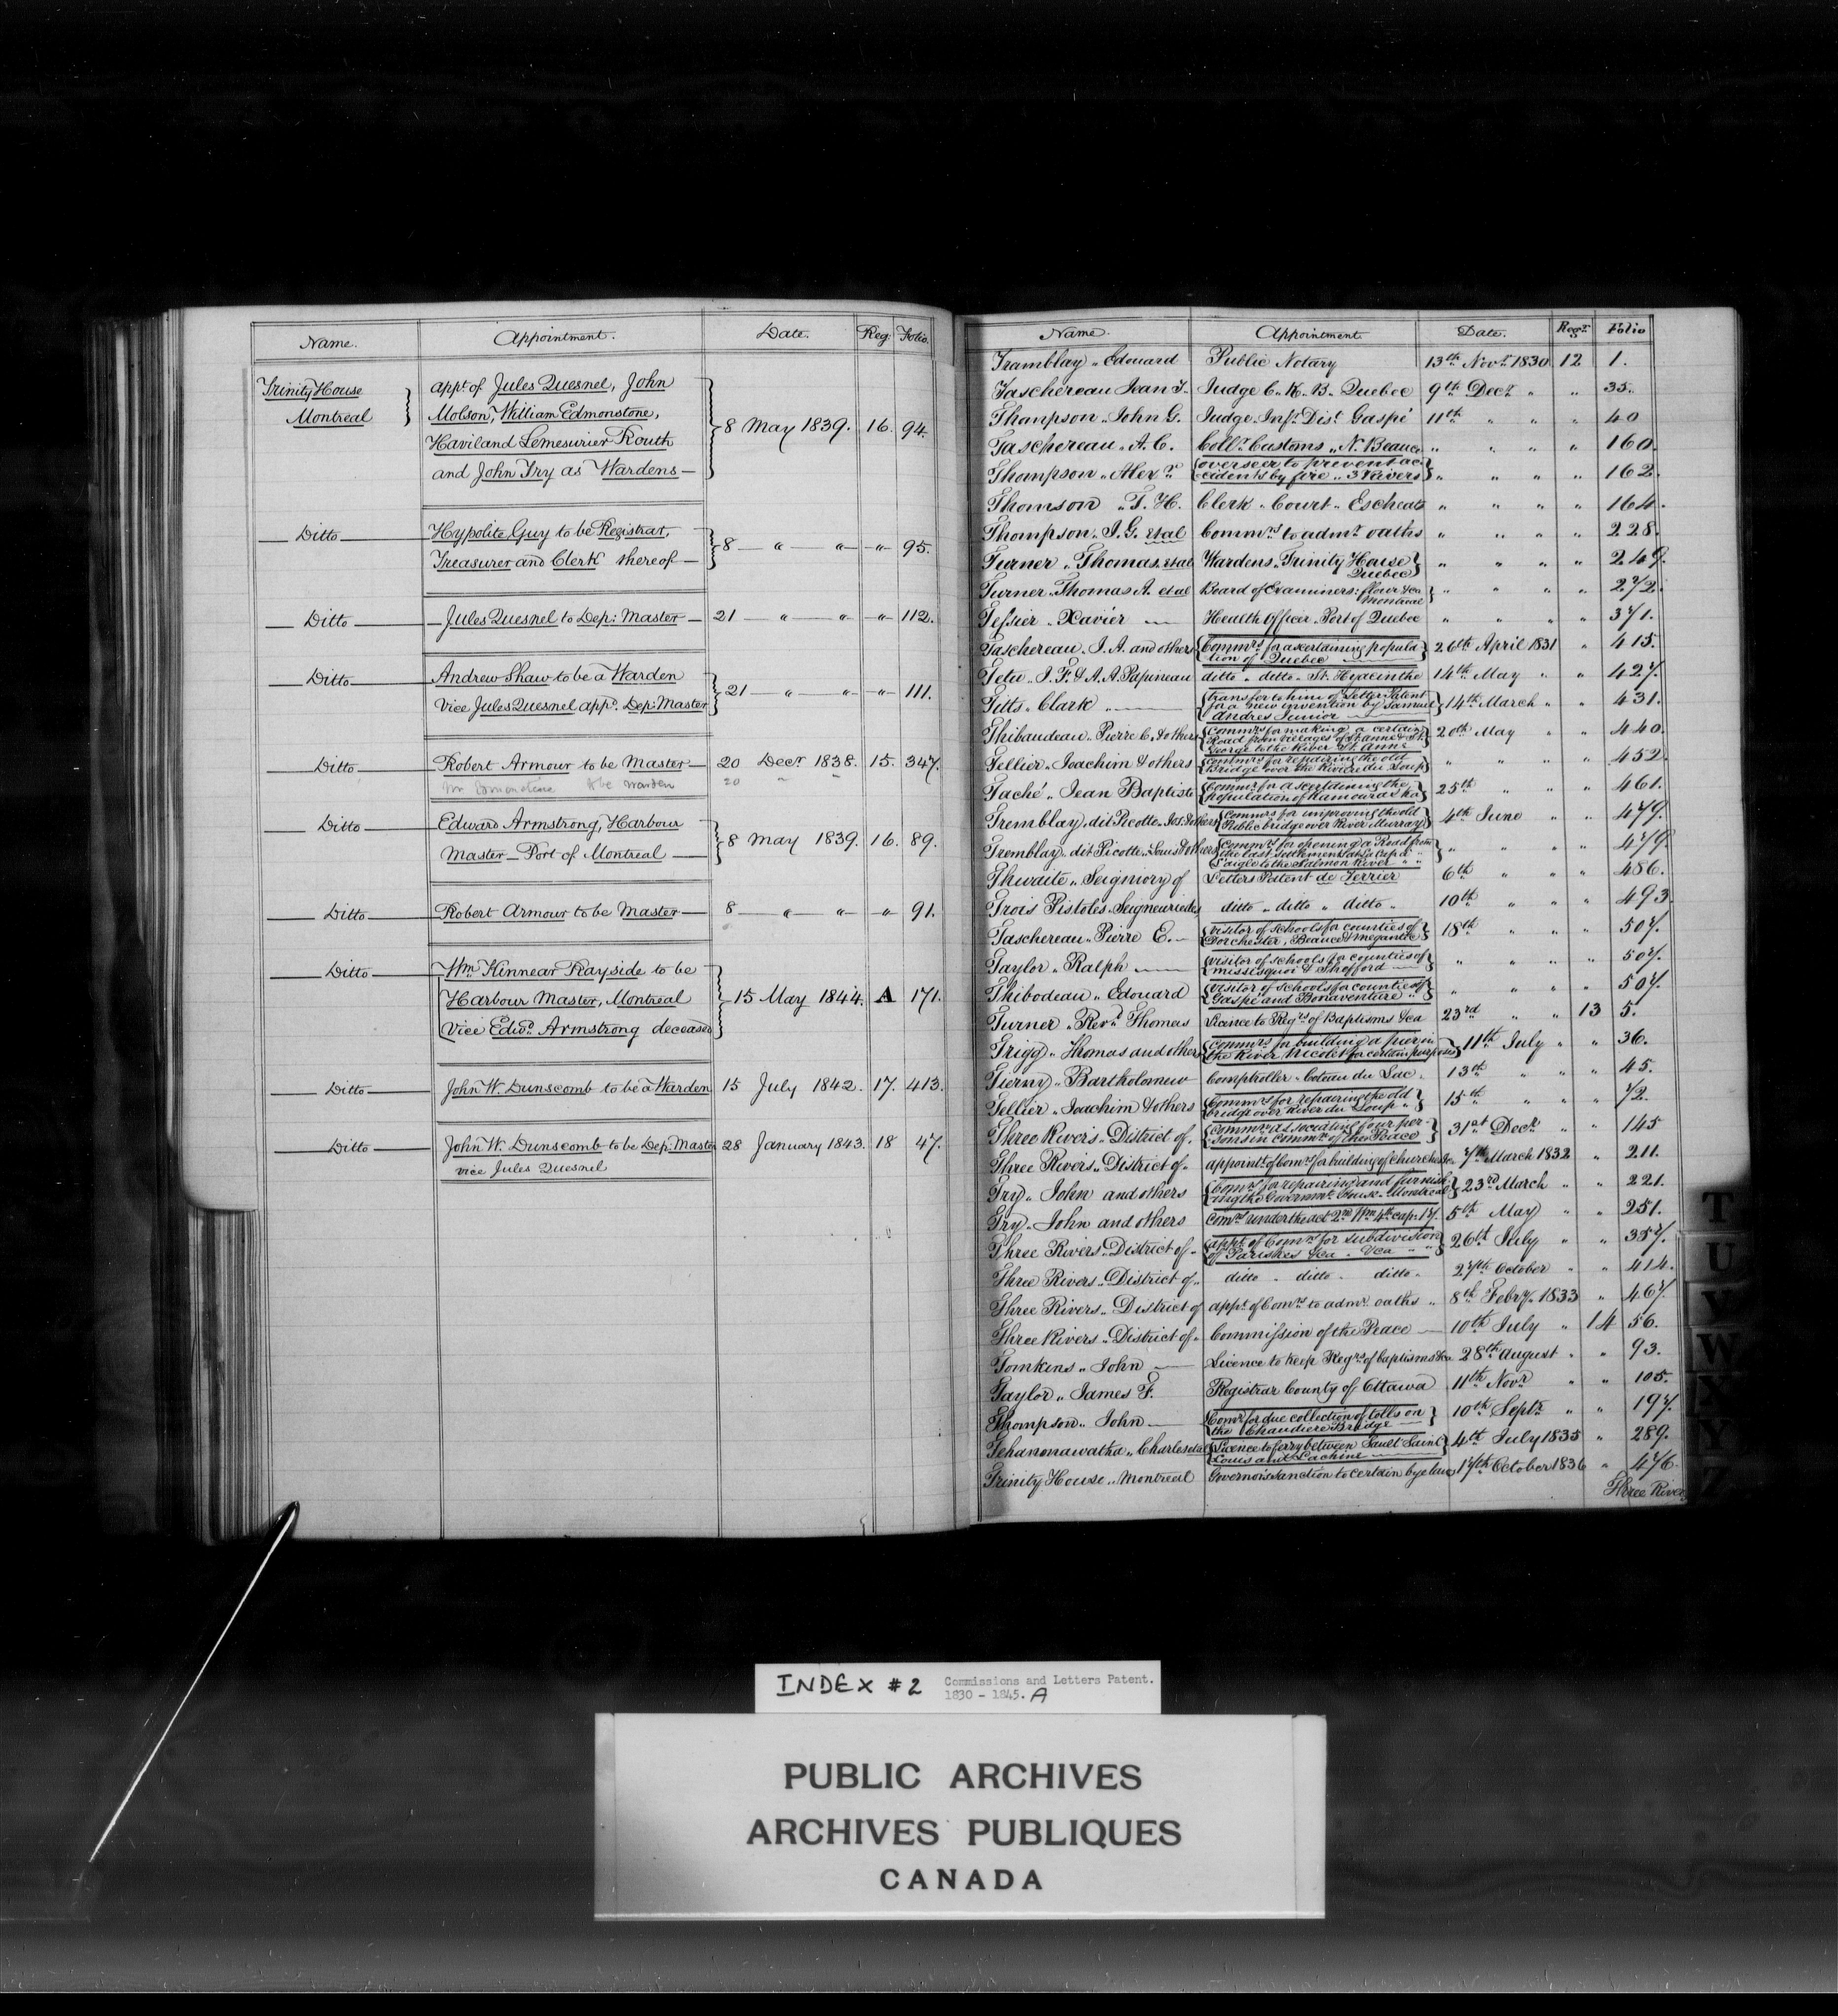 Name. Appointment. Date. Reg. Folio.
Trinity House appt of Jules Quesnel, John
Montreal Molson, William Edmonstone,
Haviland Lemesurier Routh 8 May 1839. 16. 94.
and John Try as Wardens
Ditto Hypolite Guy to be Registrar,
Treasurer and Clerk thereof 8 " " " 95.
Ditto Jules Quesnel to Dep: Master 21 " " " 112.
Ditto Andrew Shaw to be a Warden
Vice Jules Quesnel appd. Dep: Master 21 " " " 111.
Ditto Robert Armour to be Master 20 Decr 1838. 15. 347.
Mr Edmonstone to be Warden 20 " "
Ditto Edward Armstrong, Harbour
Master Port of Montreal 8 May 1839. 16. 89.
Ditto Robert Armour to be Master 8 " " " 91.
Ditto Wm Kinnear Rayside to be
Harbour Master, Montreal 15 May 1844. A 171.
Vice Edwd. Armstrong deceased
Ditto John W. Dunscomb to be a Warden 15 July 1842. 17. 413.
Ditto John W. Dunscomb to be Dep. Master 28 January 1843. 18 47.
vice Jules Quesnel
Name. Appointment Date. Regr. Folio
Tramblay " Edouard Public Notary 13th Novr 1830 12 1.
Taschereau Jean T. Judge C. K. B. Quebec 9th Decr " " 35.
Thompson " John G. Judge Infr Dist Gaspé 11th " " " 40
Taschereau " A. C. Collr Customs " N. Beauce " " " " 160.
Thompson " Alexr overseer to prevent ac-
cidents by fire " 3 Rivers " " " " 162.
Thomson " T. H. Clerk " Court " Escheats " " " " 164.
Thompson " J. G. et al Commrs to admr oaths " " " " 228.
Turner " Thomas et al Wardens " Trinity House
Quebec " " " " 249.
Turner " Thomas A. et al Board of Examiners: flour &ca
Montreal " " " " 272.
Tessier " Xavier Health Officer " Port of Quebec " " " " 371.
Taschereau " J. A. and others Commrs for ascertaining popula
tion of Quebec 26th April 1831 " 415.
Tetu " J. F. & A. A. Papineau ditto " ditto " St. Hyacinthe 14th May " " 427.
Titts " Clark transfer to him of Letter Patent
for a new invention by Samuel
Andres Junior 14th March " " 431.
Thibaudeau " Pierre C. & others Commrs for making a certain
Road from villages of St Anne & St.
George to the River St. Anne 20th May " " 440.
Tellier " Joachim & others Commrs for repairing the old
Bridge over the Riviere du Loup " " " " 452.
Taché " Jean Baptiste Commrs for ascertaining the
population of Kamouraska 25th " " " 461.
Tremblay " dit Picotte " Jos. & others Commrs for improving the old
Public bridge over River Murray 4th June " " 479.
Tremblay " dit Picotte " Louis & others Commrs for opening a Road from
the last settlements at a Cap à
l'aigle to the Salmon River " " " " 479.
Thwaite " Seigniory of Letters Patent de Terrier 6th " " " 486.
Trois Pistoles " Seigneurie des ditto " ditto " ditto " 10th " " " 493.
Taschereau " Pierre E. visitor of schools for counties of
Dorchester, Beauce & Megantic 18th " " " 507.
Taylor " Ralph visitor of schools for counties of
Missisquoi & Shefford " " " " 507.
Thibodeau " Edouard visitor of schools for counties of
Gaspé and Bonaventure " " " " 507.
Turner " Revd Thomas Licence to Regrs of Baptisms &ca 23rd " " 13 5.
Trigg " Thomas and others Commrs for building a pier in
the River Nicolet for certain purposes 11th July " " 36.
Tierny " Bartholomew Comptroller " Coteau du Lac 13th " " " 45.
Tellier " Joachim & others Commrs for repairing the old
bridge over River du Loup " 15th " " " 72.
Three Rivers " District of Commrs associating four per-
sons in Commn of the Peace 31st Decr " " 145
Three Rivers " District of appoint of Comrs for building of churches &c 7th March 1832 " 211.
Try " John and others Comrs for repairing and furnish-
ing the Governmt House " Montreal 23rd March " " 221.
Try " John and others Comrs under the act 2nd Wm 4th cap: 17. 5th May " " 251.
Three Rivers " District of appt of Comrs for subdivision
of Parishes &ca " &ca " " 26th July " " 357.
Three Rivers " District of ditto " ditto " ditto " 27th October " " 414.
Three Rivers " District of appt of Comrs to admr oaths " 8th Febry. 1833 " 467.
Three Rivers " District of Commission of the Peace 10th July " 14 56.
Tomkins " John Licence to keep Regrs of baptisms &ca 28th August " " 93.
Taylor " James F. Registrar County of Ottawa 11th Novr " " 105.
Thompson " John Comr for due collection of tolls on
the Chaudiere Bridge 10th Septr " " 197.
Tehanonawatha " Charles et al Licence to ferry between Sault Saint
Louis and Lachine 4th July 1835 " 289.
Trinity House " Montreal Governor's sanction to certain bye laws 17th October 1836 " 476.
Three Rivers
T
U
V
W
X
Y
Z
INDEX #2 Commissions and Letters Patent.
1830 - 1845. A
PUBLIC ARCHIVES
ARCHIVES PUBLIQUES
CANADA